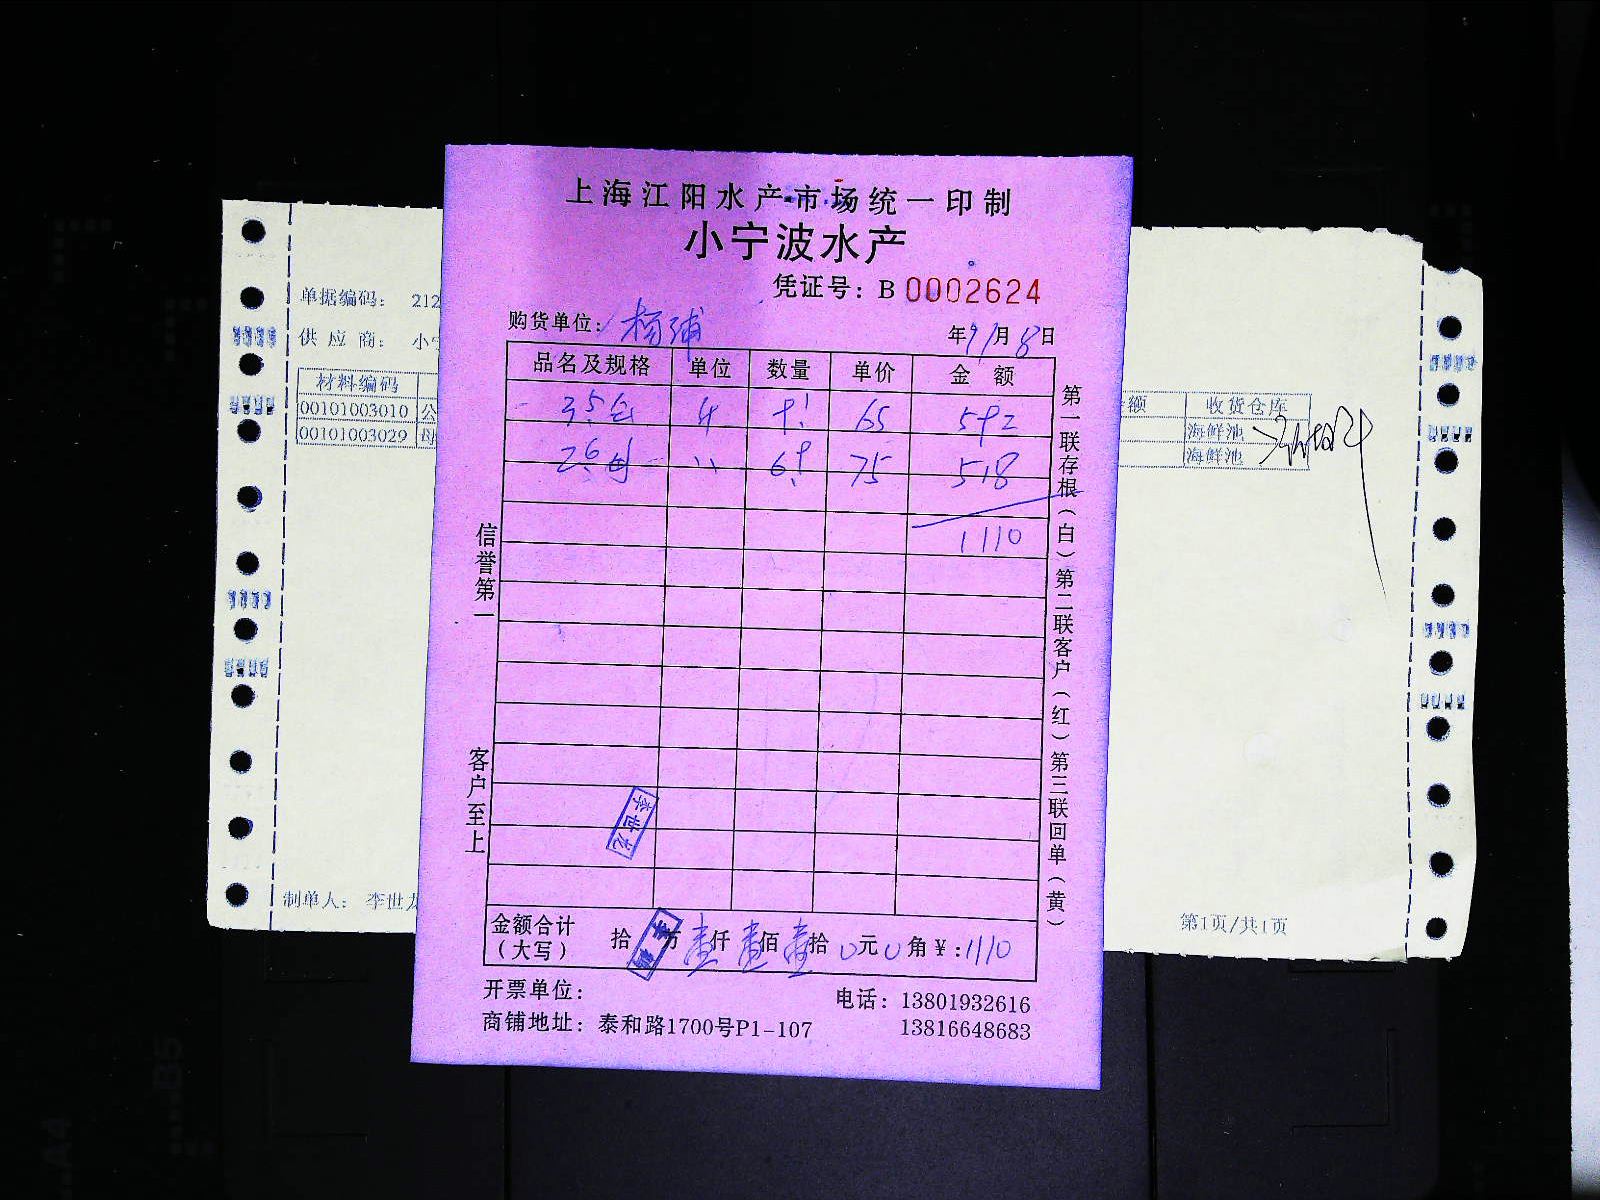 上海江阳水产市场统一印制
小宁波水产
凭证号：B 0002624
购货单位： 杨浦 年 9/月 8日
品名及规格 单位 数量 单价 金额
3.5公 斤 65 592
2.6母 〃 75 518
1110
信誉第一
客户至上
第一联存根（白）第二联客户（红）第三联回单（黄）
李世龙
金额合计（大写） 拾 万 壹仟 壹佰 壹拾 0元 0角 ¥：1110
开票单位：
电话：13801932616
商铺地址：泰和路1700号P1-107
13816648683
单据编码： 212
供 应 商： 小
材料编码
00101003010 公
00101003029 母
制单人： 李世龙
额 收货仓库
海鲜池
海鲜池
第1页/共1页
A4
B5